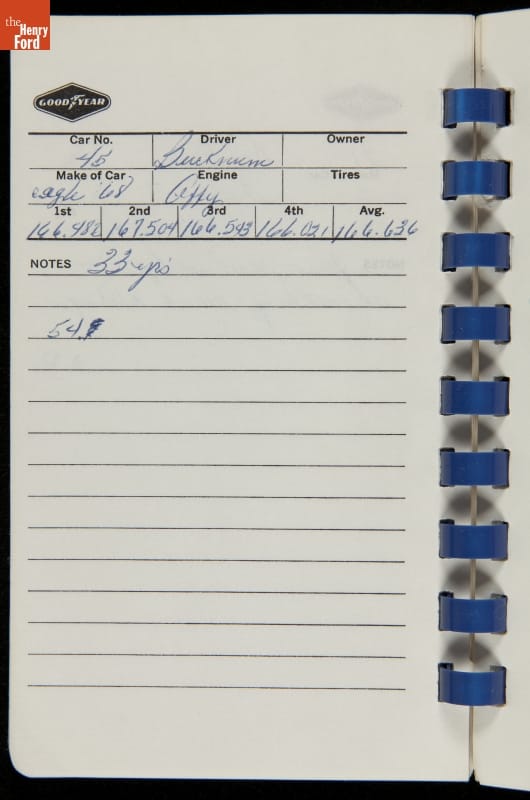 the
Henry
Ford
GOODYEAR
Car No. Driver Owner
45 Bucknum
Make of Car Engine Tires
eagle '68 Offy
1st 2nd 3rd 4th Avg.
166.482 167.504 166.543 166.021 166.636
NOTES 33
54.